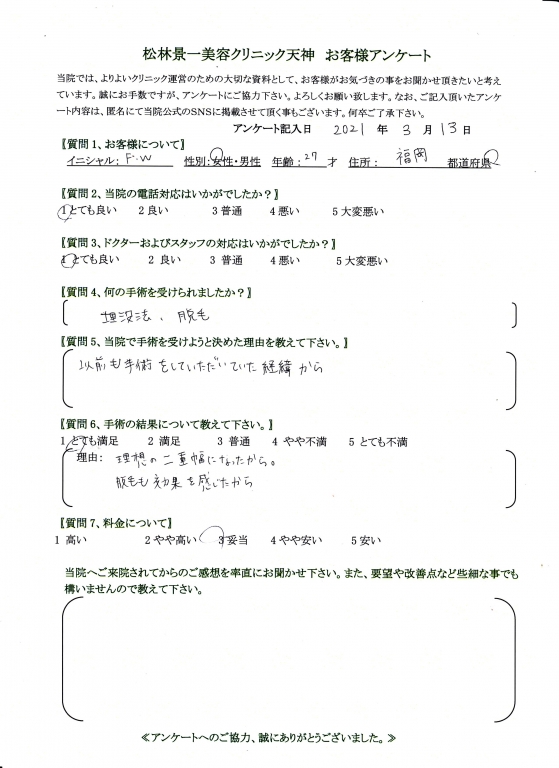 松林景一美容クリニック天神　お客様アンケート
当院では、よりよいクリニック運営のための大切な資料として、お客様がお気づきの事をお聞かせ頂きたいと考え
ています。誠にお手数ですが、アンケートにご協力下さい。よろしくお願い致します。なお、ご記入頂いたアンケ
ート内容は、匿名にて当院公式のSNSに掲載させて頂く事もございます。何卒ご了承下さい。
アンケート記入日　2021 年 3 月 13 日
【質問1、お客様について】
イニシャル：F.W　性別：女性・男性　年齢：27 才　住所：福岡 都道府県
【質問2、当院の電話対応はいかがでしたか？】
1とても良い　2 良い　3 普通　4 悪い　5 大変悪い
【質問3、ドクターおよびスタッフの対応はいかがでしたか？】
1とても良い　2 良い　3 普通　4 悪い　5 大変悪い
【質問4、何の手術を受けられましたか？】
埋没法、脱毛
【質問5、当院で手術を受けようと決めた理由を教えて下さい。】
以前も手術をしていただいていた経緯から
【質問6、手術の結果について教えて下さい。】
1 とても満足　2 満足　3 普通　4 やや不満　5 とても不満
理由：理想の二重幅になったから。
脱毛も効果を感じたから
【質問7、料金について】
1 高い　2 やや高い　3 妥当　4 やや安い　5 安い
当院へご来院されてからのご感想を率直にお聞かせ下さい。また、要望や改善点など些細な事でも
構いませんので教えて下さい。
≪アンケートへのご協力、誠にありがとうございました。≫